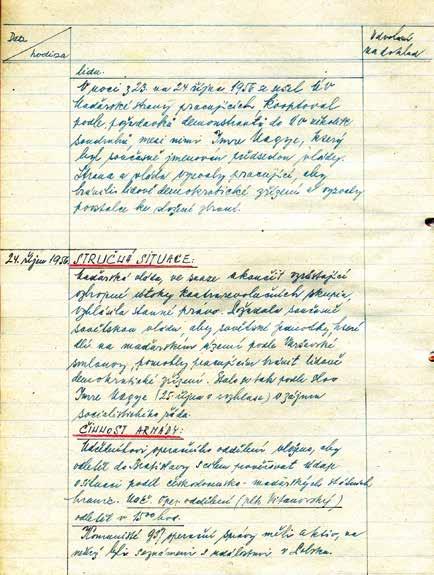 Den
hodina
Odvolání
na dohled
lidu.
V noci z 23. na 24 října 1956 se sešel ÚV
Maďarské strany pracujících. Kooptoval
podle požadavků demonstrantů do ÚV několik
soudruhů mezi nimi Imre Nagye, který
byl současně jmenován předsedou vlády.
Strana a vláda vyzvaly pracující, aby
bránili lidově demokratické zřízení a vyzvaly
povstalce ku složení zbraní.
24. říjen 1956
STRUČNÁ SITUACE:
Maďarská vláda, ve snaze skončit vzrůstající
ozbrojené útoky kontrarevolučních skupin,
vyhlásila stanné právo. Požádala současně
sovětskou vládu aby sovětské jednotky, které
dlí na maďarském území podle Varšavské
smlouvy, pomohly pracujícím bránit lidově
demokratické zřízení. Stalo se tak podle slov
Imre Nagye (25. října v rozhlase) v zájmu
socialistického řádu.
ČINNOST ARMÁDY:
Náčelníkovi operačního oddělení uloženo, aby
odletěl do Bratislavy s cílem prověřovat údaje
o situaci podél československo-maďarských státních
hranic. Náč. oper. oddělení (plk.
odletěl v 15 00 hod.
Komunisté operační správy měli aktiv, na
byli seznámeni s událostmi v Polsku.